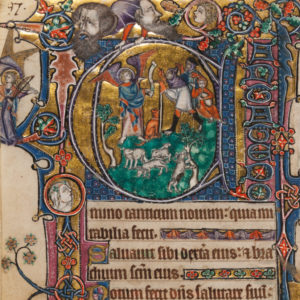 C
mino canticum nouum: quia m
rabilia fecit.
Saluauit sibi dext̃a eius: & bra
chium scm̃ eius.
Notum fecit dñs salutare suũ